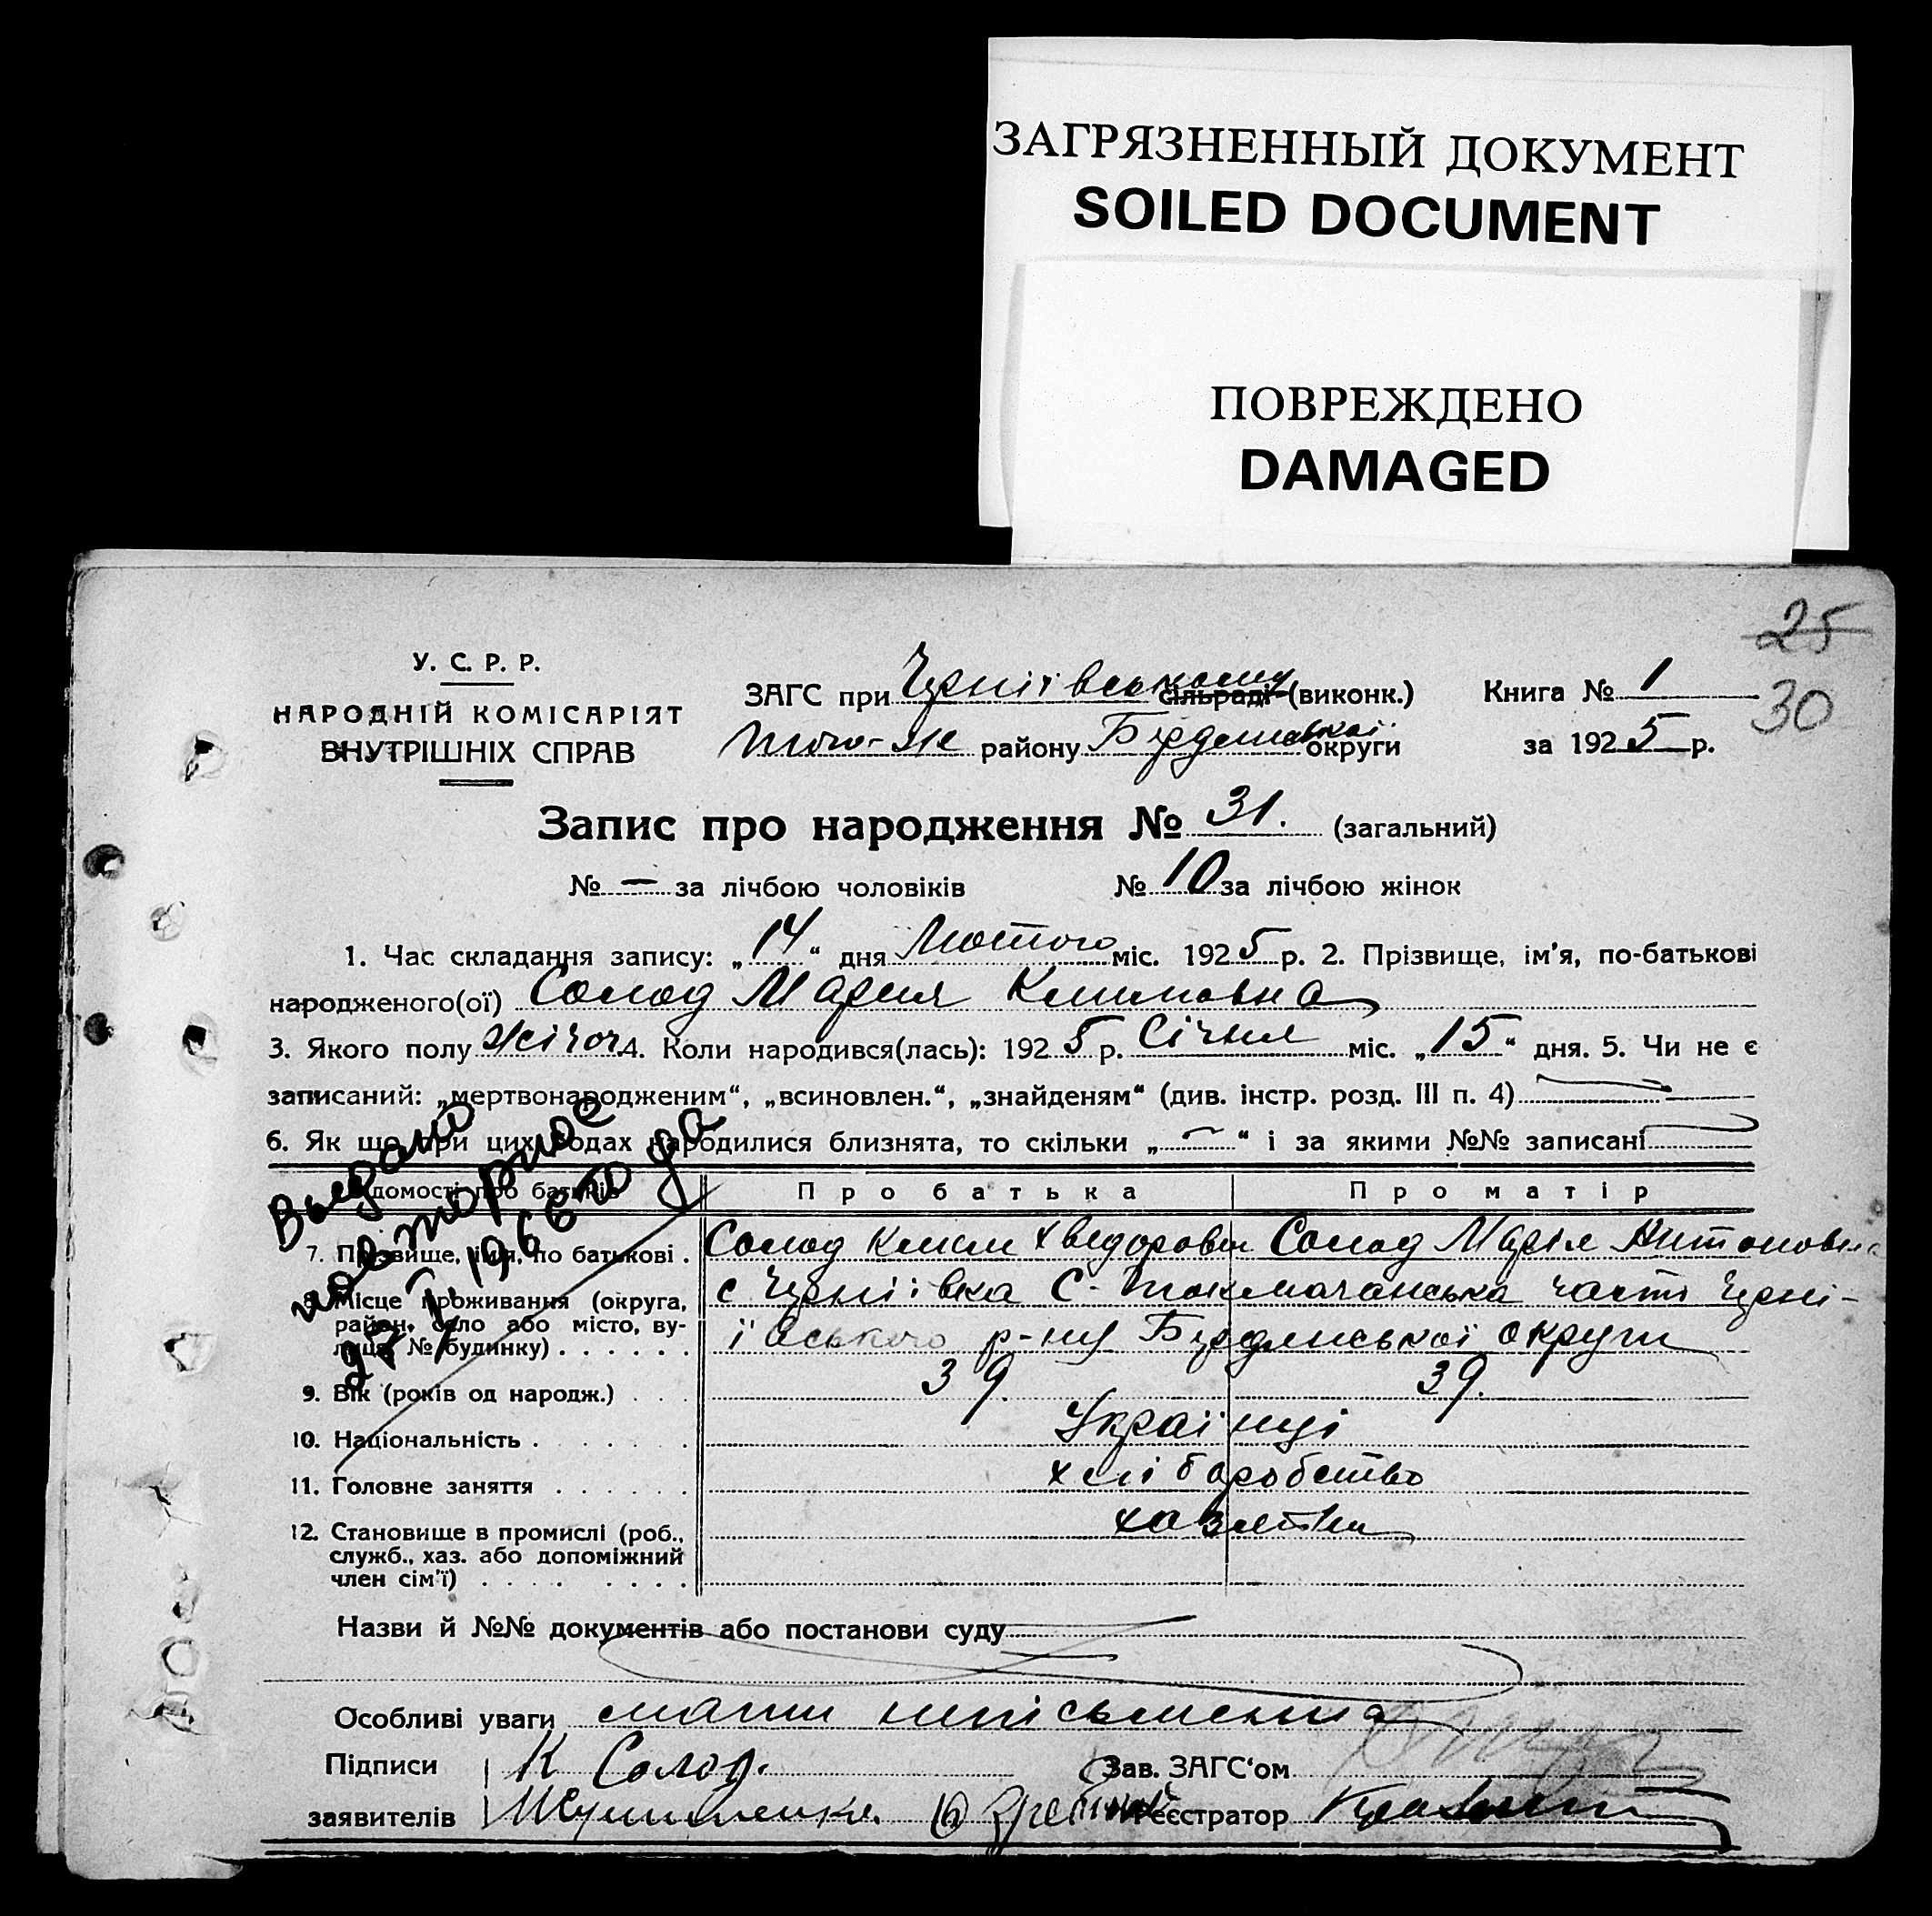 ЗАГРЯЗНЕННЫЙ ДОКУМЕНТ
SOILED DOCUMENT
ПОВРЕЖДЕНО
DAMAGED
25
30
У. С. Р. Р.
НАРОДНІЙ КОМІСАРІЯТ
ВНУТРІШНІХ СПРАВ
ЗАГС при Черніївському сільраді (виконк.) Книга № 1
того-же району Бердянської округи за 1925 р.
Запис про народження № 31. (загальний)
№ – за лічбою чоловіків № 10 за лічбою жінок
1. Час складання запису: „14“ дня Лютого міс. 1925 р. 2. Прізвище, ім'я, по-батькові
народженого(ої) Солод Мария Климовна
3. Якого полу жіноч 4. Коли народився(лась): 1925 р. Січня міс. „15“ дня. 5. Чи не є
записаний: „мертвонародженим“, „всиновлен.“, „знайденям“ (див. інстр. розд. III п. 4)
6. Як що при цих родах народилися близнята, то скільки „–“ і за якими №№ записані
Выдано
повторное
1966 года
Відомості про батьків Про батька Про матір
7. Прізвище, ім'я, по батькові . Солод Клим Хведорович Солод Марія Антоновна
8. Місце проживання (округа, район, село або місто, вулиця, № будинку) . . . . . . с Черніївка С-Токмачанська часть Черні-
ївського р-ну Бердянської округи
9. Вік (років од народж.) . . 39. 39.
10. Національність . . . . . . . Українці
11. Головне заняття . . . . . . хліборобство
12. Становище в промислі (роб., служб., хаз. або допоміжний член сім'ї) . . . . . . . . хазяїни
Назви й №№ документів або постанови суду
Особливі уваги мати непісьменна
Підписи К Солод. Зав. ЗАГС'ом
заявителів Реєстратор